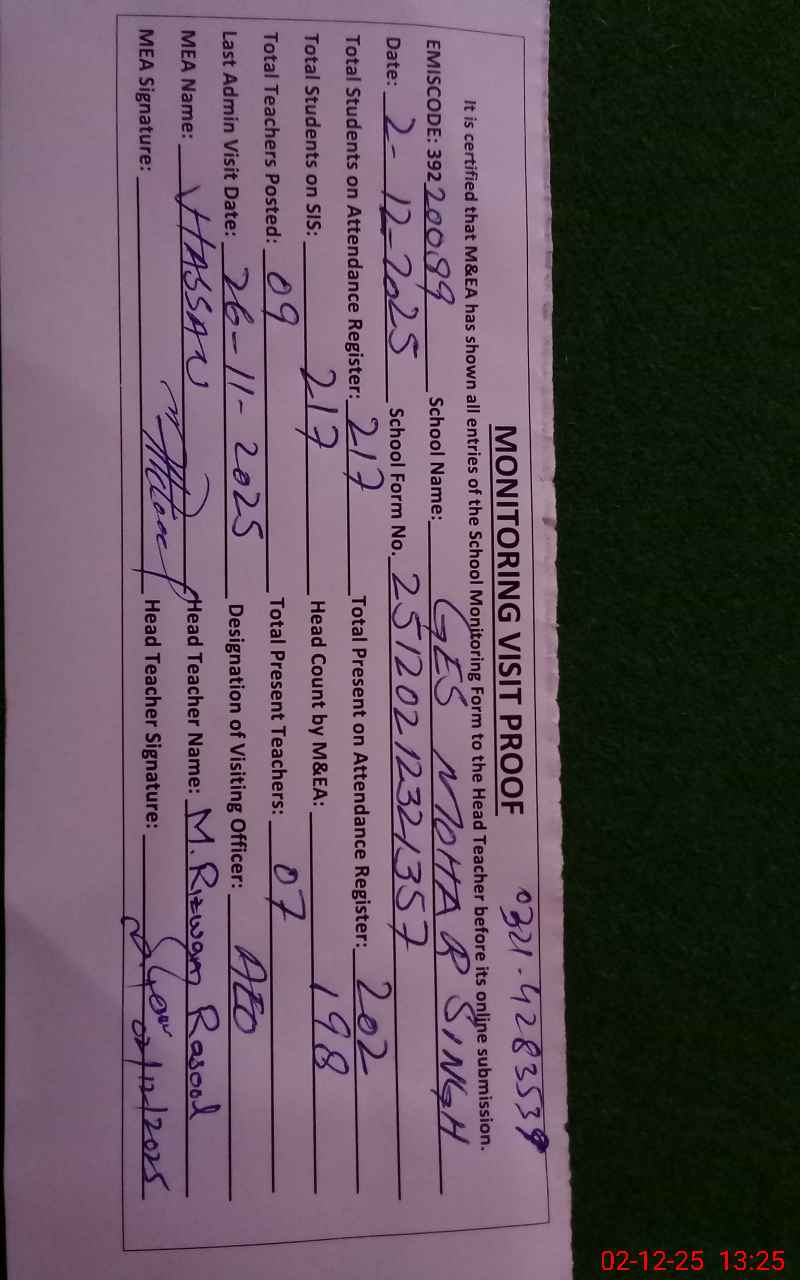 MONITORING VISIT PROOF 0321-4283539
It is certified that M&EA has shown all entries of the School Monitoring Form to the Head Teacher before its online submission.
EMISCODE: 39220099 School Name: GES MOHAR SINGH
Date: 2-12-2025 School Form No. 25120212321357
Total Students on Attendance Register: 217 Total Present on Attendance Register: 202
Total Students on SIS: 217 Head Count by M&EA: 198
Total Teachers Posted: 09 Total Present Teachers: 07
Last Admin Visit Date: 26-11-2025 Designation of Visiting Officer: AEO
MEA Name: HASSAN Head Teacher Name: M. Rizwan Rasool
MEA Signature: Head Teacher Signature: 02/12/2025
02-12-25 13:25